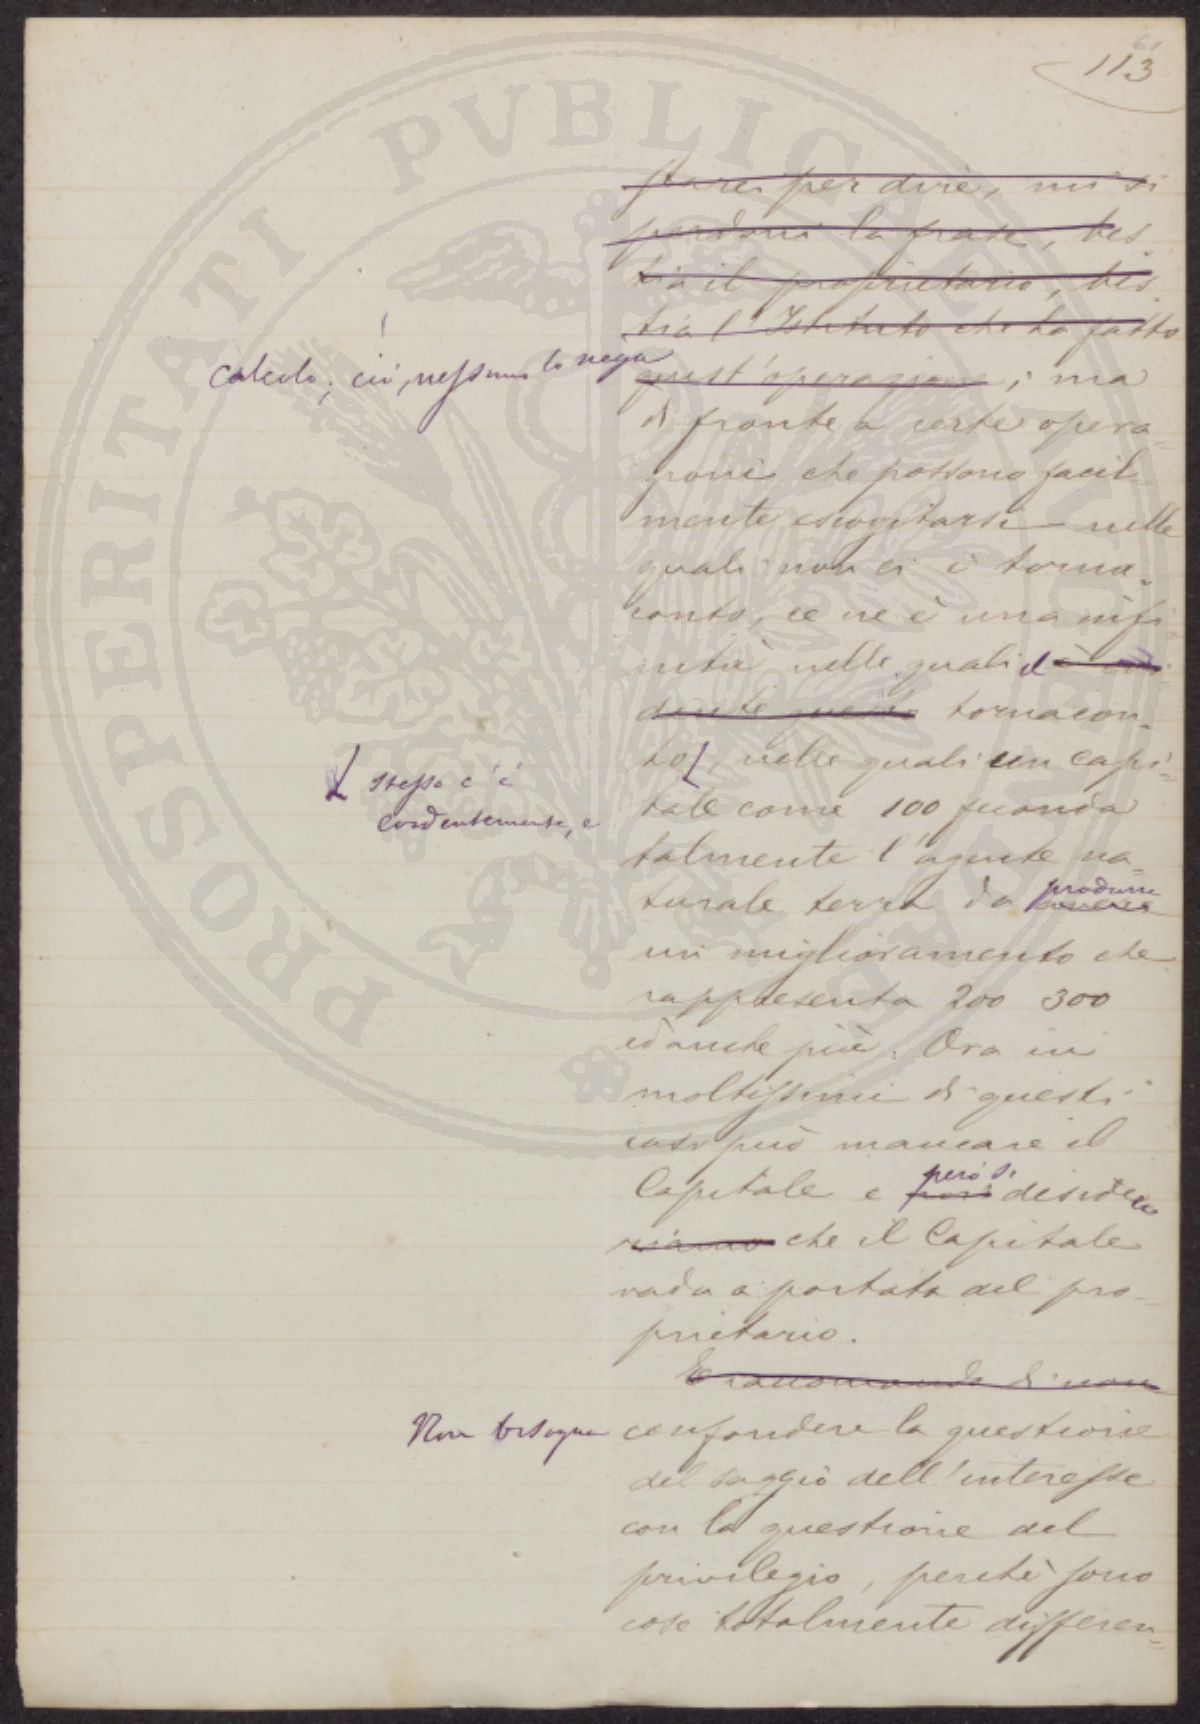 113
PROSPERITATI PUBLICAE
starei per dire, mi si
perdoni la frase, bes
tia il proprietario, bes
tia l'Istituto che ha fatto
calcolo; ciò, nessuno lo nega
quest'operazione; ma
di fronte a certe opera-
zioni che possono facil
mente escogitarsi nelle
quali non ci è torna-
conto, ce ne è una infi
nità nelle quali il è evi
dente questo tornacon-
to, nelle quali un capi-
stesso c'è
evidentemente, e
tale come 100 feconda
talmente l'agente na-
turale terra da produrre
un miglioramento che
rappresenta 200 300
ed anche più. Ora in
moltissimi di questi
casi può mancare il
Capitale e però si desidera
riamo che il Capitale
vada a portata del pro-
prietario.
E raccomando di non
Non bisogna confondere la questione
del saggio dell'interesse
con la questione del
privilegio, perchè sono
cose totalmente differen-